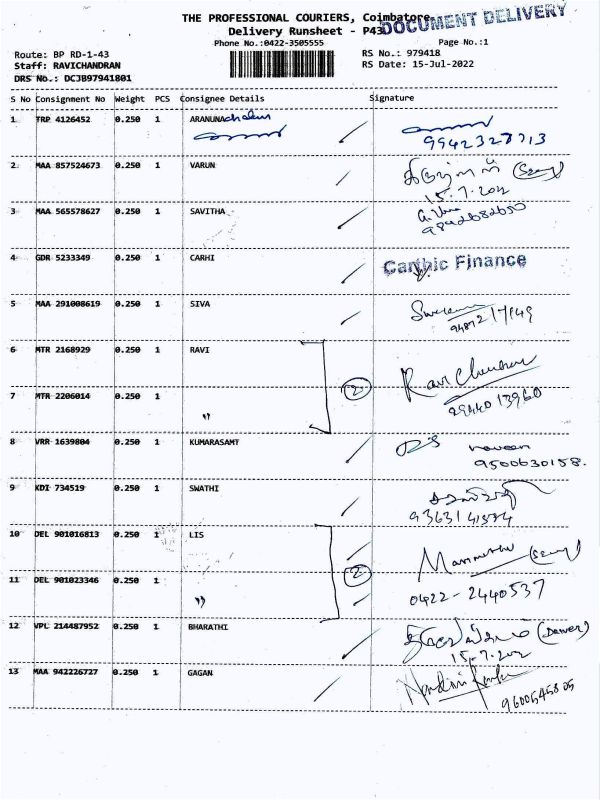 THE PROFESSIONAL COURIERS, Coimbatore
DOCUMENT DELIVERY
Delivery Runsheet - P43
Phone No.:0422-3505555
Page No.:1
Route: BP RD-1-43
RS No.: 979418
Staff: RAVICHANDRAN
RS Date: 15-Jul-2022
DRS No.: DCJB97941801
S No Consignment No Weight PCS Consignee Details Signature
1 TRP 4126452 0.250 1 ARANUNA
9942327713
2 MAA 857524673 0.250 1 VARUN
15.7.202
3 MAA 565578627 0.250 1 SAVITHA
9842682650
4 GDR 5233349 0.250 1 CARHI Carthic Finance
5 MAA 291008619 0.250 1 SIVA
6 MTR 2168929 0.250 1 RAVI Ravi Chandran
2
7 MTR 2206014 0.250 1 "
2944013960
8 VRR 1639804 0.250 1 KUMARASAMT naveen
9500630158.
9 KDI 734519 0.250 1 SWATHI
10 DEL 901016813 0.250 1 LIS Marimuthu
2
11 DEL 901023346 0.250 1 " 0422-2440537
12 VPL 214487952 0.250 1 BHARATHI
15.7.202
13 MAA 942226727 0.250 1 GAGAN